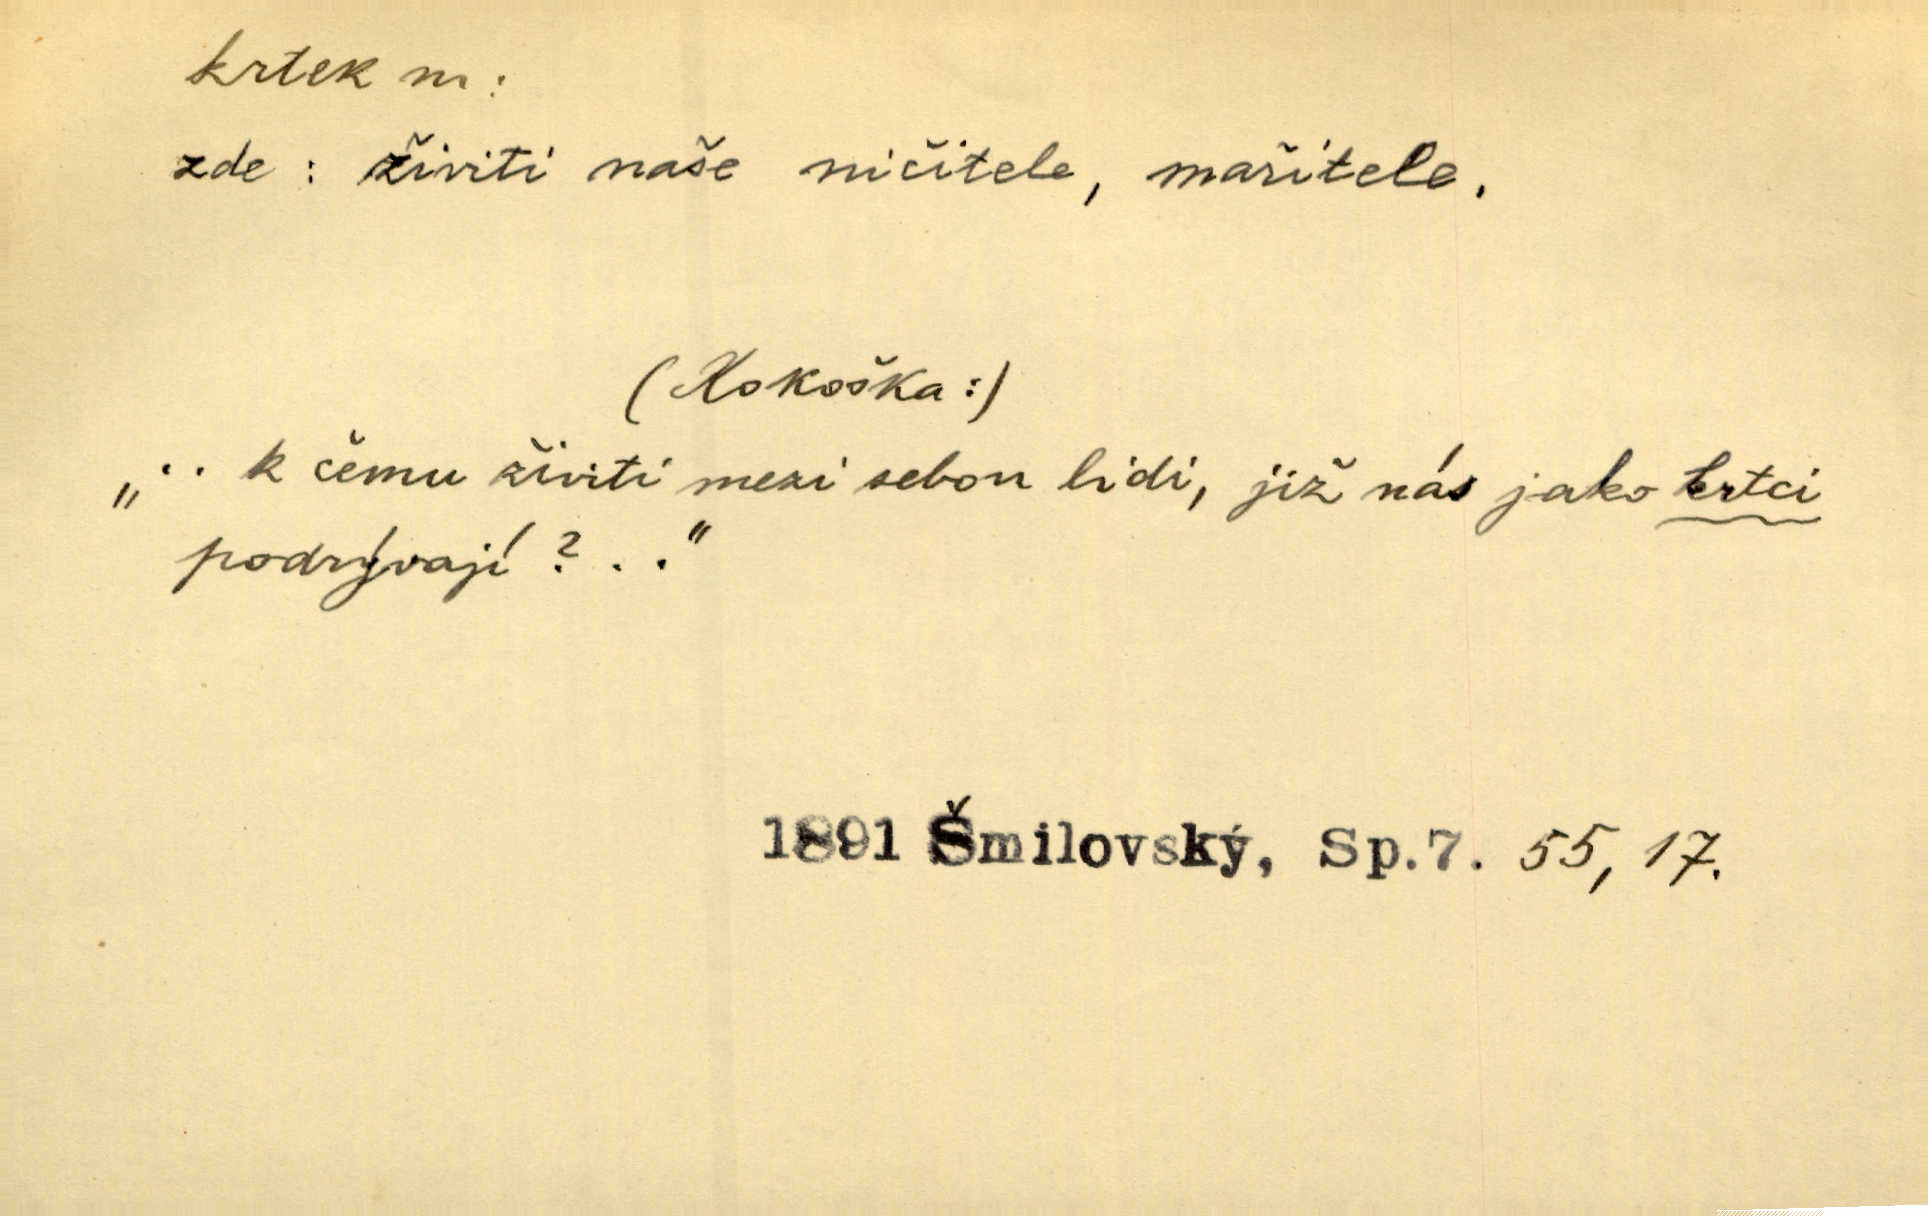 krtek m:
zde : živiti naše ničitele, mařitele.
(Kokoška:)
„.. k čemu živiti mezi sebou lidi, již nás jako krtci
podrývají ? .."
1891 Šmilovský, Sp.7. 55, 17.